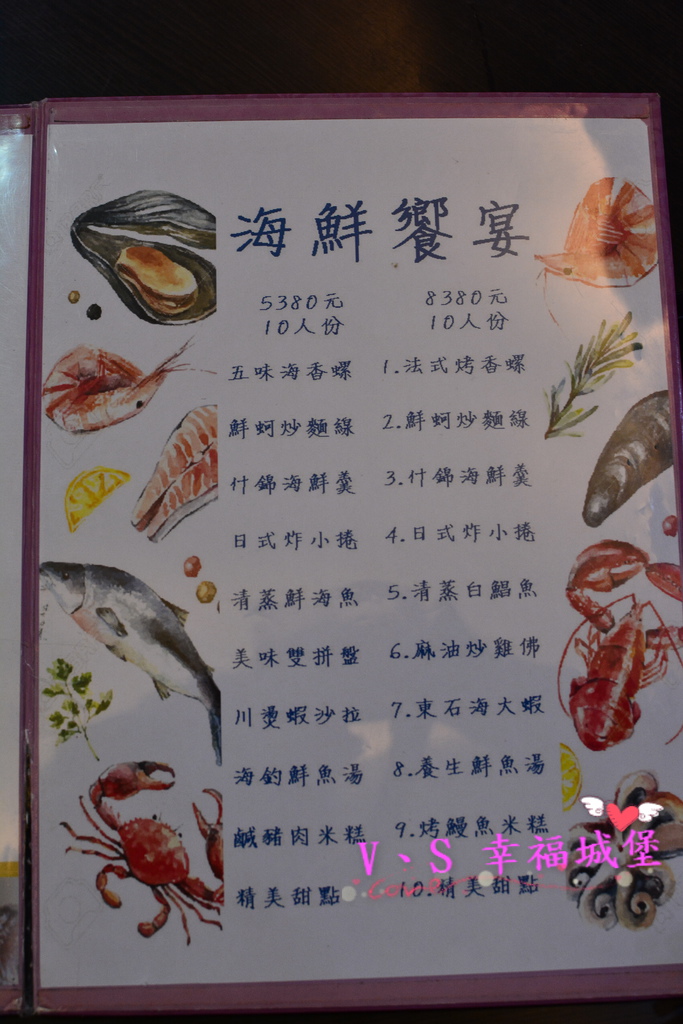 海鮮饗宴
5380元 8380元
10人份 10人份
五味海香螺 1.法式烤香螺
鮮蚵炒麵線 2.鮮蚵炒麵線
什錦海鮮羹 3.什錦海鮮羹
日式炸小捲 4.日式炸小捲
清蒸鮮海魚 5.清蒸白鯧魚
美味雙拼盤 6.麻油炒雞佛
川燙蝦沙拉 7.東石海大蝦
海釣鮮魚湯 8.養生鮮魚湯
鹹豬肉米糕 9.烤鰻魚米糕
精美甜點 10.精美甜點
V、S 幸福城堡